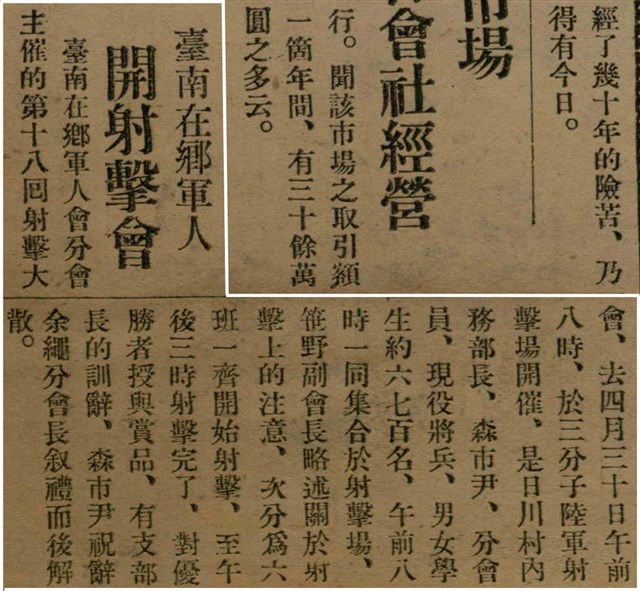 經了幾十年的險苦、乃
得有今日。
市場
會社經營
行。聞該市場之取引額
一箇年間、有三十餘萬
圓之多云。
臺南在鄉軍人
開射擊會
臺南在鄉軍人會分會
主催的第十八囘射擊大
會、去四月三十日午前
八時、於三分子陸軍射
擊場開催、是日川村內
務部長、森市尹、分會
員、現役將兵、男女學
生約六七百名、午前八
時一同集合於射擊場、
笹野副會長略述關於射
擊上的注意、次分爲六
班一齊開始射擊、至午
後三時射擊完了、對優
勝者授與賞品、有支部
長的訓辭、森市尹祝辭
余繩分會長叙禮而後解
散。